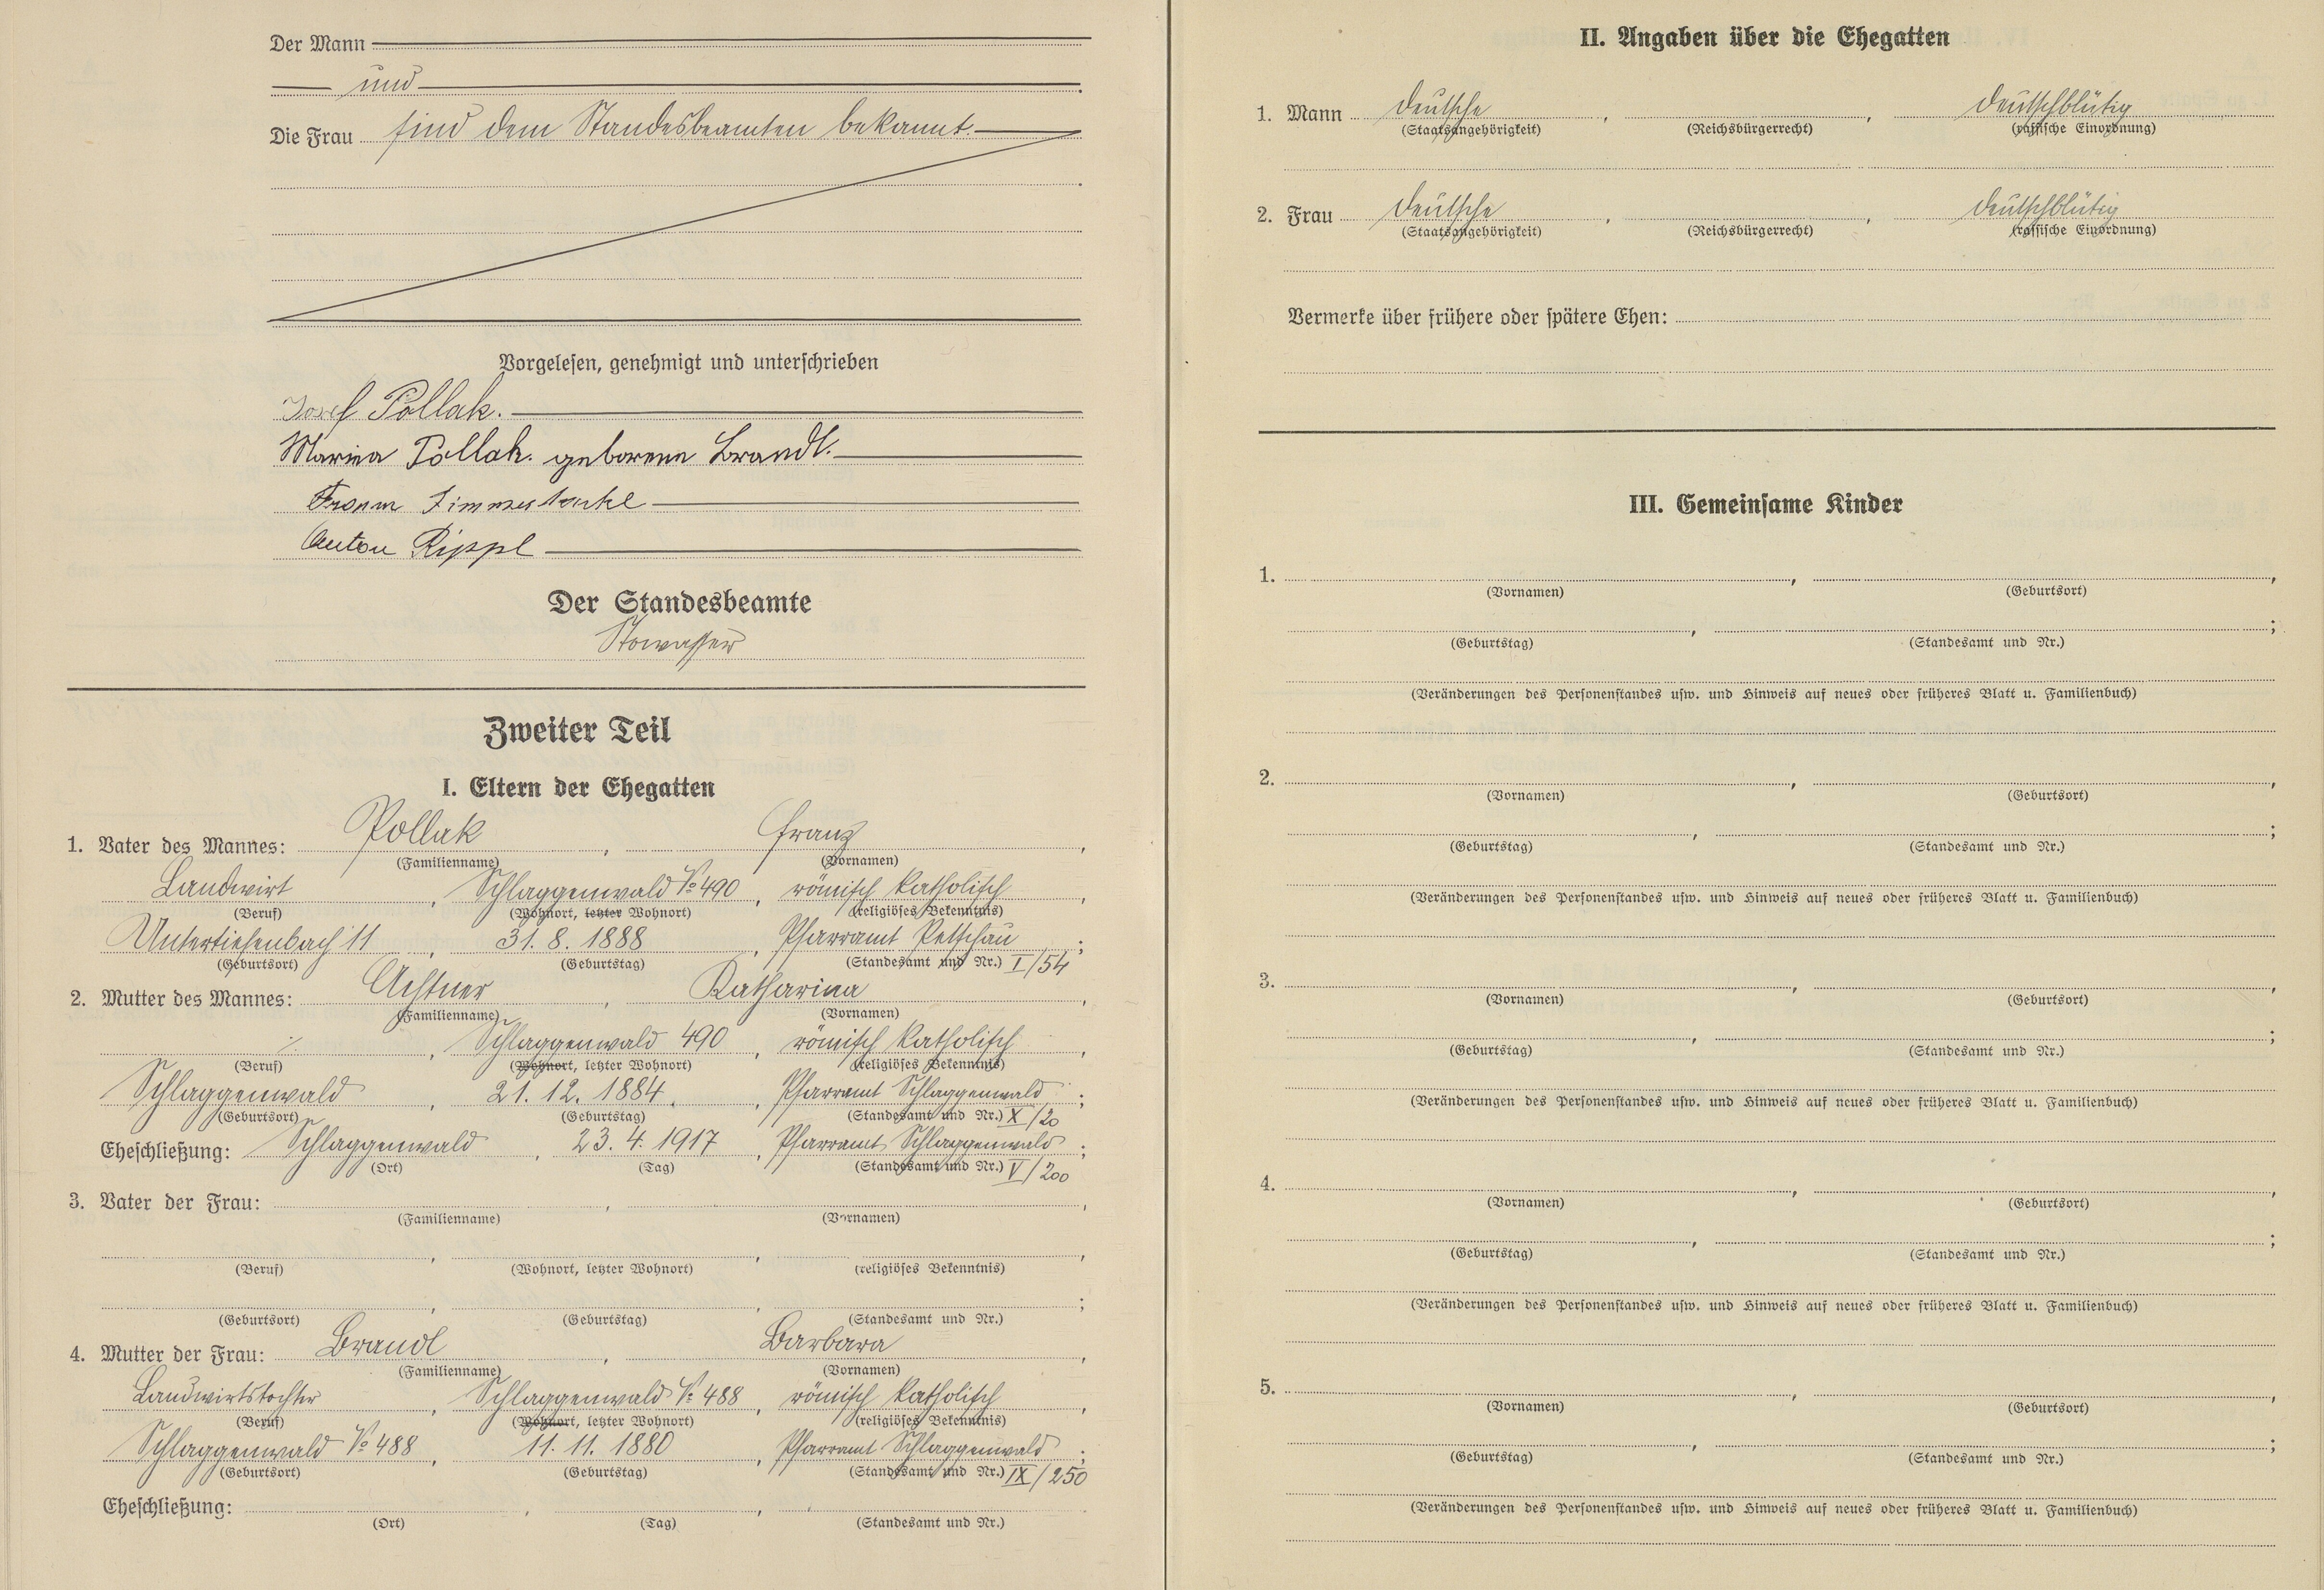 Der Mann
und
Die Frau sind dem Standesbeamten bekannt.
Vorgelesen, genehmigt und unterschrieben
Josef Pollak.
Maria Pollak. geborene Brandl.
Anton Rippl
Der Standesbeamte
Stowasser
Zweiter Teil
I. Eltern der Ehegatten
1. Vater des Mannes: Pollak, Franz,
(Familienname) (Vornamen)
Landwirt, Schlaggenwald No 490, römisch katholisch,
(Beruf) (Wohnort, letzter Wohnort) (religiöses Bekenntnis)
Untertiefenbach 11, 31. 8. 1888, Pfarramt Petschau;
(Geburtsort) (Geburtstag) (Standesamt und Nr.) I/54
2. Mutter des Mannes: Achtner, Katharina,
(Familienname) (Vornamen)
⁒, Schlaggenwald 490, römisch katholisch,
(Beruf) (Wohnort, letzter Wohnort) (religiöses Bekenntnis)
Schlaggenwald, 21. 12. 1884., Pfarramt Schlaggenwald;
(Geburtsort) (Geburtstag) (Standesamt und Nr.) X/20
Eheschließung: Schlaggenwald, 23. 4. 1917, Pfarramt Schlaggenwald;
(Ort) (Tag) (Standesamt und Nr.) V/200
3. Vater der Frau: , ,
(Familienname) (Vornamen)
(Beruf) (Wohnort, letzter Wohnort) (religiöses Bekenntnis)
(Geburtsort) (Geburtstag) (Standesamt und Nr.)
4. Mutter der Frau: Brandl, Barbara,
(Familienname) (Vornamen)
Landwirtstochter, Schlaggenwald No 488, römisch katholisch,
(Beruf) (Wohnort, letzter Wohnort) (religiöses Bekenntnis)
Schlaggenwald No 488, 11. 11. 1880, Pfarramt Schlaggenwald;
(Geburtsort) (Geburtstag) (Standesamt und Nr.) IX/250
Eheschließung:
(Ort) (Tag) (Standesamt und Nr.)
II. Angaben über die Ehegatten
1. Mann Deutsche, , deutschblütig
(Staatsangehörigkeit) (Reichsbürgerrecht) (rassische Einordnung)
2. Frau Deutsche, , deutschblütig
(Staatsangehörigkeit) (Reichsbürgerrecht) (rassische Einordnung)
Vermerke über frühere oder spätere Ehen:
III. Gemeinsame Kinder
1.
(Vornamen) (Geburtsort)
(Geburtstag) (Standesamt und Nr.)
(Veränderungen des Personenstandes usw. und Hinweis auf neues oder früheres Blatt u. Familienbuch)
2.
(Vornamen) (Geburtsort)
(Geburtstag) (Standesamt und Nr.)
(Veränderungen des Personenstandes usw. und Hinweis auf neues oder früheres Blatt u. Familienbuch)
3.
(Vornamen) (Geburtsort)
(Geburtstag) (Standesamt und Nr.)
(Veränderungen des Personenstandes usw. und Hinweis auf neues oder früheres Blatt u. Familienbuch)
4.
(Vornamen) (Geburtsort)
(Geburtstag) (Standesamt und Nr.)
(Veränderungen des Personenstandes usw. und Hinweis auf neues oder früheres Blatt u. Familienbuch)
5.
(Vornamen) (Geburtsort)
(Geburtstag) (Standesamt und Nr.)
(Veränderungen des Personenstandes usw. und Hinweis auf neues oder früheres Blatt u. Familienbuch)